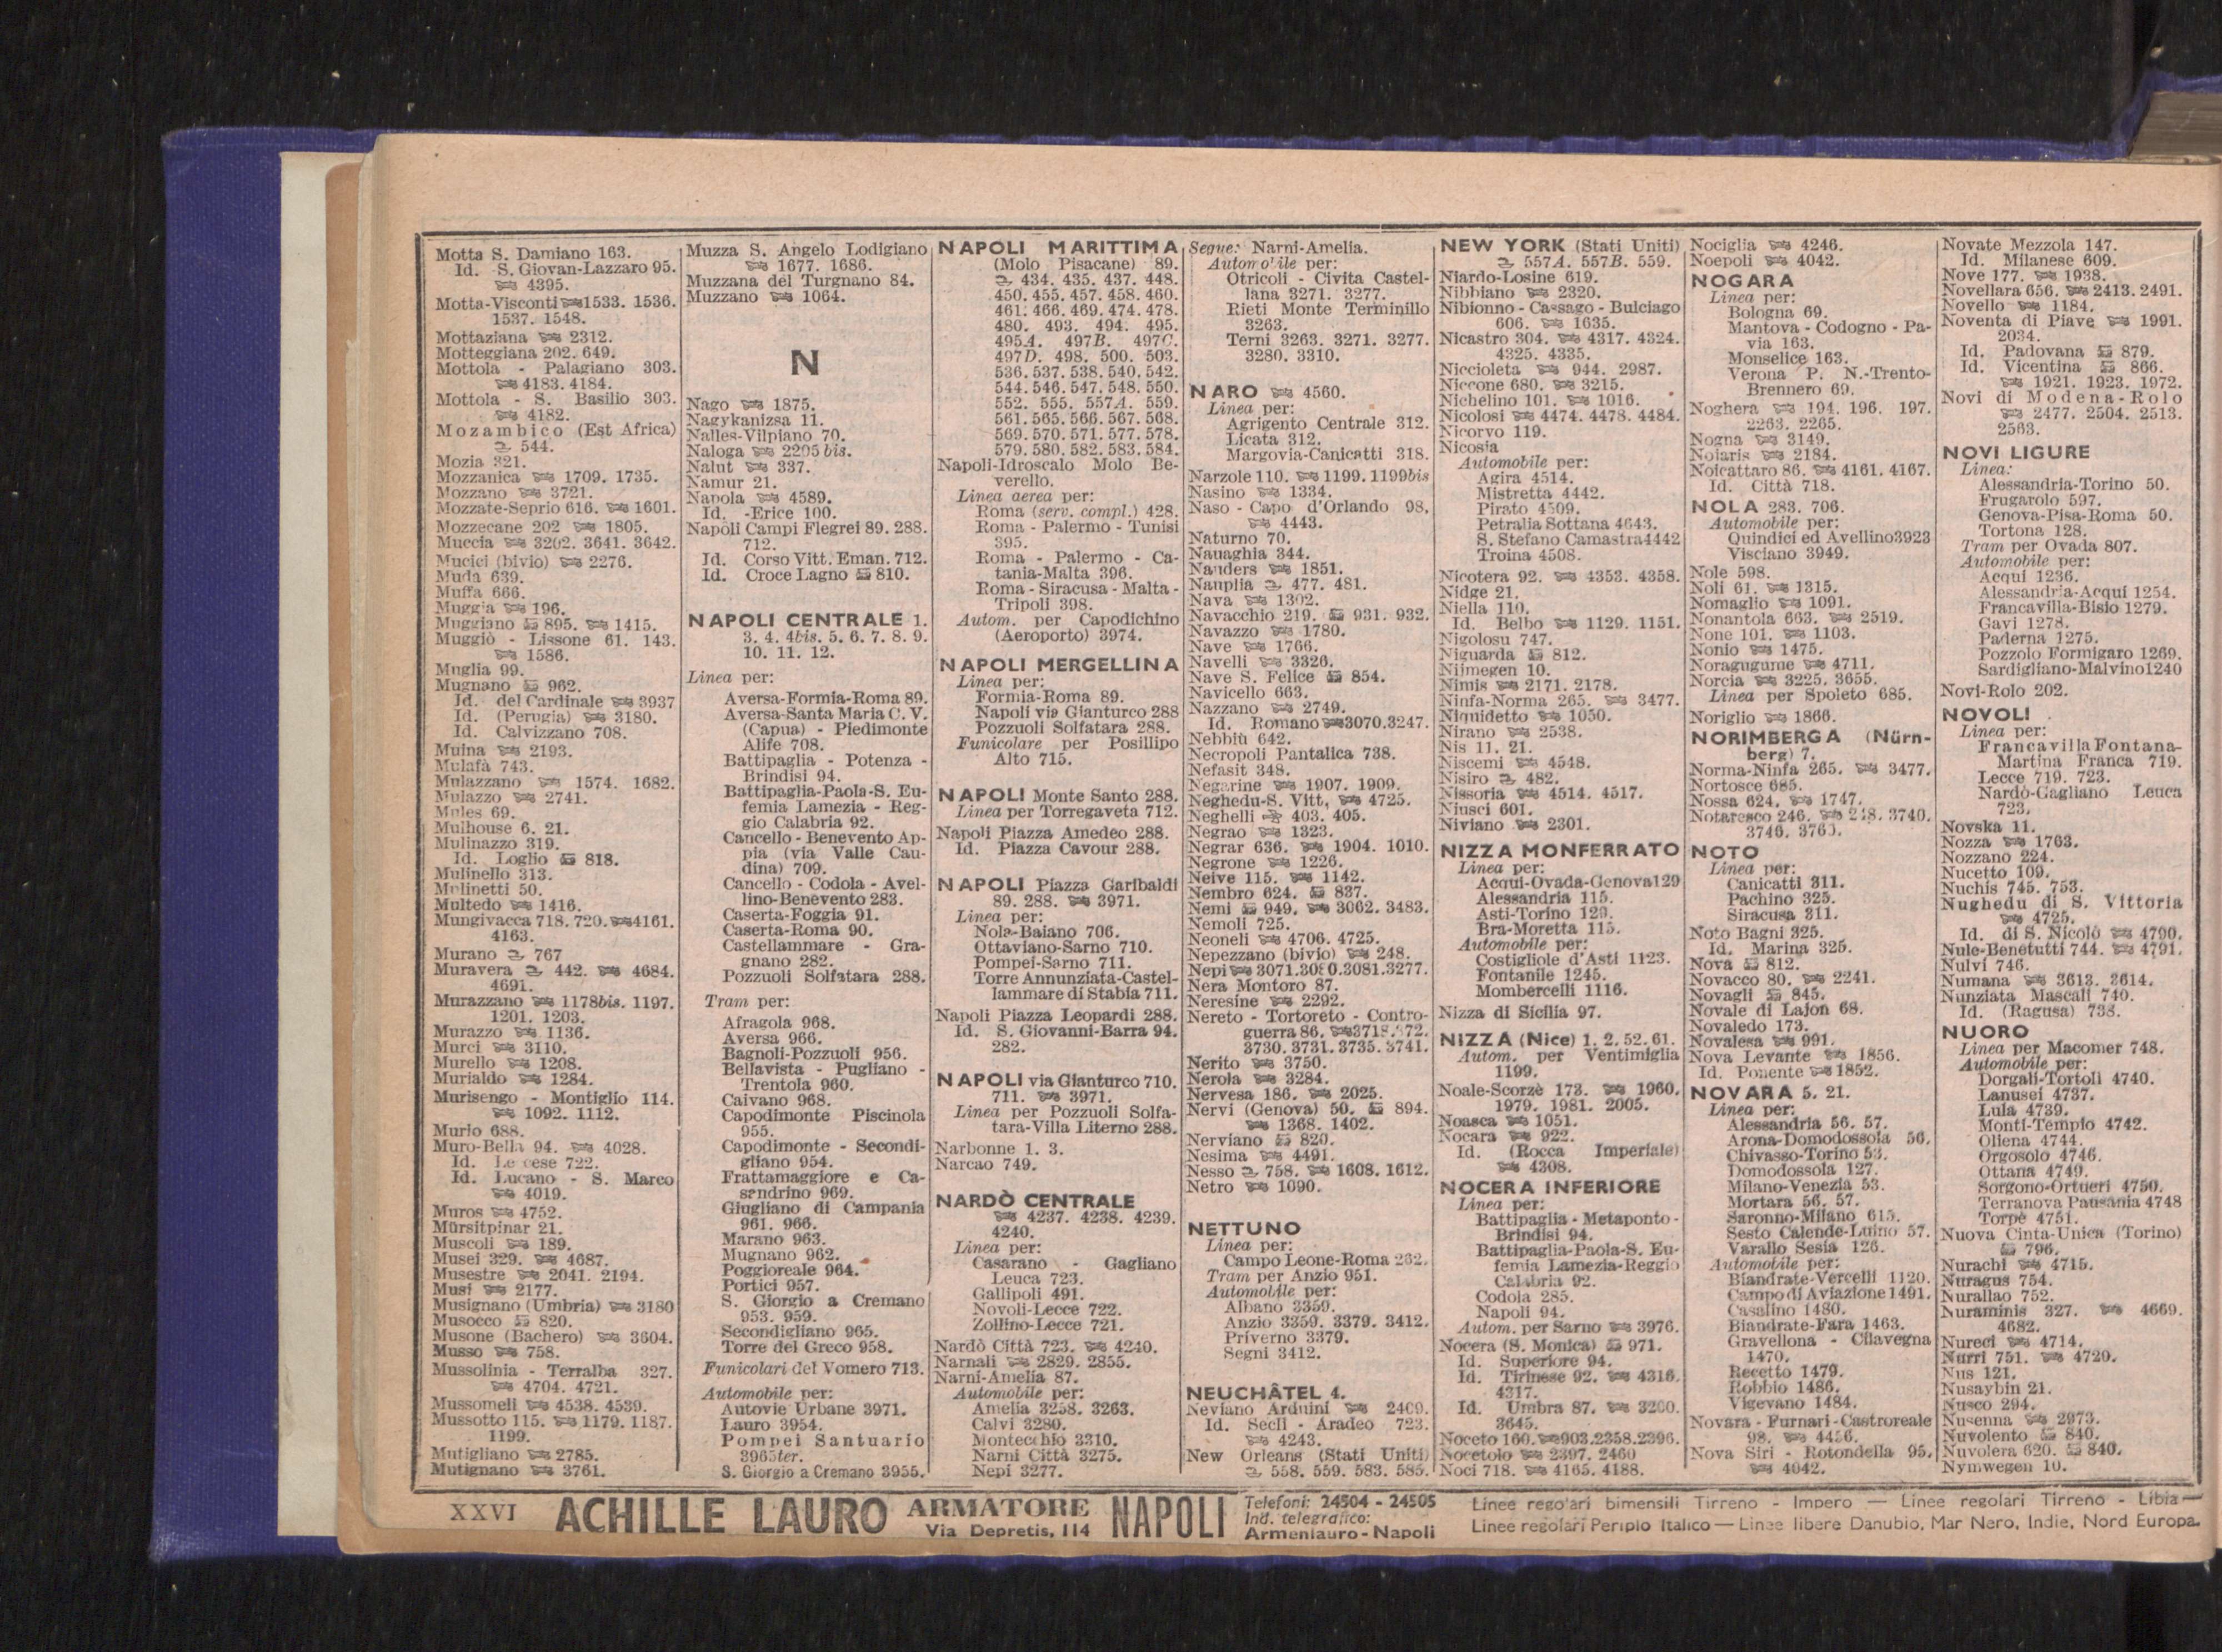 Motta S. Damiano 163.
Id. S. Giovan-Lazzaro 95.
4395.
Motta-Visconti 1533. 1536.
1537. 1548.
Mottaziana 2312.
Motteggiana 202. 649.
Mottola - Palagiano 303.
4183. 4184.
Mottola - S. Basilio 303.
4182.
Mozambico (Est Africa)
544.
Mozia 321.
Mozzanica 1709. 1735.
Mozzano 3721.
Mozzate-Seprio 616. 1601.
Mozzecane 202 1805.
Muccia 3202. 3641. 3642.
Mucici (bivio) 2276.
Muda 639.
Muffa 666.
Muggia 196.
Muggiano 895. 1415.
Muggiò - Lissone 61. 143.
1586.
Muglia 99.
Mugnano 962.
Id. del Cardinale 3937
Id. (Perugia) 3180.
Id. Calvizzano 708.
Muina 2193.
Mulafà 743.
Mulazzano 1574. 1682.
Mulazzo 2741.
Mules 69.
Mulhouse 6. 21.
Mulinazzo 319.
Id. Loglio 818.
Mulinello 313.
Mulinetti 50.
Multedo 1416.
Mungivacca 718. 720. 4161.
4163.
Murano 767
Muravera 442. 4684.
4691.
Murazzano 1178bis. 1197.
1201. 1203.
Murazzo 1136.
Murci 3110.
Murello 1208.
Murialdo 1284.
Murisengo - Montiglio 114.
1092. 1112.
Murlo 688.
Muro-Bella 94. 4028.
Id. 722.
Id. Lucano - S. Marco
4019.
Muros 4752.
Mürsitpinar 21.
Muscoli 189.
Musei 329. 4687.
Musestre 2041. 2194.
Musi 2177.
Musignano (Umbria) 3180
Musocco 820.
Musone (Bachero) 3604.
Musso 758.
Mussolinia - Terralba 327.
4704. 4721.
Mussomeli 4538. 4539.
Mussotto 115. 1179. 1187.
1199.
Mutigliano 2785.
Mutignano 3761.
Muzza S. Angelo Lodigiano
1677. 1686.
Muzzana del Turgnano 84.
Muzzano 1064.
N
Nago 1875.
Nagykanizsa 11.
Nalles-Vilpiano 70.
Naloga 2205bis.
Nalut 337.
Namur 21.
Napola 4589.
Id. -Erice 100.
Napoli Campi Flegrei 89. 288.
712.
Id. Corso Vitt. Eman. 712.
Id. Croce Lagno 810.
NAPOLI CENTRALE 1.
3. 4. 4bis. 5. 6. 7. 8. 9.
10. 11. 12.
Linea per:
Aversa-Formia-Roma 89.
Aversa-Santa Maria C. V.
(Capua) - Piedimonte
Alife 708.
Battipaglia - Potenza -
Brindisi 94.
Battipaglia-Paola-S. Eu-
femia Lamezia - Reg-
gio Calabria 92.
Cancello - Benevento Ap-
pia (via Valle Cau-
dina) 709.
Cancello - Codola - Avel-
lino-Benevento 283.
Caserta-Foggia 91.
Caserta-Roma 90.
Castellammare - Gra-
gnano 282.
Pozzuoli Solfatara 288.
Tram per:
Afragola 968.
Aversa 966.
Bagnoli-Pozzuoli 956.
Bellavista - Pugliano -
Trentola 960.
Caivano 968.
Capodimonte Piscinola
955.
Capodimonte - Secondi-
gliano 954.
Frattamaggiore e Ca-
sandrino 969.
Giugliano di Campania
961. 966.
Marano 963.
Mugnano 962.
Poggioreale 964.
Portici 957.
S. Giorgio a Cremano
953. 959.
Secondigliano 965.
Torre del Greco 958.
Funicolari del Vomero 713.
Automobile per:
Autovie Urbane 3971.
Lauro 3954.
Pompei Santuario
3965ter.
S. Giorgio a Cremano 3955.
NAPOLI MARITTIMA
(Molo Pisacane) 89.
434. 435. 437. 448.
450. 455. 457. 458. 460.
461. 466. 469. 474. 478.
480. 493. 494. 495.
495A. 497B. 497C.
497D. 498. 500. 503.
536. 537. 538. 540. 542.
544. 546. 547. 548. 550.
552. 555. 557A. 559.
561. 565. 566. 567. 568.
569. 570. 571. 577. 578.
579. 580. 582. 583. 584.
Napoli-Idroscalo Molo Be-
verello.
Linea aerea per:
Roma (serv. compl.) 428.
Roma - Palermo - Tunisi
395.
Roma - Palermo - Ca-
tania-Malta 396.
Roma - Siracusa - Malta -
Tripoli 398.
Autom. per Capodichino
(Aeroporto) 3974.
NAPOLI MERGELLINA
Linea per:
Formia-Roma 89.
Napoli via Gianturco 288
Pozzuoli Solfatara 288.
Funicolare per Posillipo
Alto 715.
NAPOLI Monte Santo 288.
Linea per Torregaveta 712.
Napoli Piazza Amedeo 288.
Id. Piazza Cavour 288.
NAPOLI Piazza Garibaldi
89. 288. 3971.
Linea per:
Nola-Baiano 706.
Ottaviano-Sarno 710.
Pompei-Sarno 711.
Torre Annunziata-Castel-
lammare di Stabia 711.
Napoli Piazza Leopardi 288.
Id. S. Giovanni-Barra 94.
282.
NAPOLI via Gianturco 710.
711. 3971.
Linea per Pozzuoli Solfa-
tara-Villa Literno 288.
Narbonne 1. 3.
Narcao 749.
NARDÒ CENTRALE
4237. 4238. 4239.
4240.
Linea per:
Casarano - Gagliano
Leuca 723.
Gallipoli 491.
Novoli-Lecce 722.
Zollino-Lecce 721.
Nardò Città 723. 4240.
Narnali 2829. 2855.
Narni-Amelia 87.
Automobile per:
Amelia 3258. 3263.
Calvi 3280.
Montecchio 3310.
Narni Città 3275.
Nepi 3277.
Segue: Narni-Amelia.
Automobile per:
Otricoli - Civita Castel-
lana 3271. 3277.
Rieti Monte Terminillo
3263.
Terni 3263. 3271. 3277.
3280. 3310.
NARO 4560.
Linea per:
Agrigento Centrale 312.
Licata 312.
Margovia-Canicatti 318.
Narzole 110. 1199. 1199bis
Nasino 1334.
Naso - Capo d'Orlando 98.
4443.
Naturno 70.
Nauaghia 344.
Nauders 1851.
Nauplia 477. 481.
Nava 1302.
Navacchio 219. 931. 932.
Navazzo 1780.
Nave 1766.
Navelli 3326.
Nave S. Felice 854.
Navicello 663.
Nazzano 2749.
Id. Romano 3070. 3247.
Nebbiù 642.
Necropoli Pantalica 738.
Nefasit 348.
Negarine 1907. 1909.
Neghedu-S. Vitt, 4725.
Neghelli 403. 405.
Negrao 1323.
Negrar 636. 1904. 1010.
Negrone 1226.
Neive 115. 1142.
Nembro 624. 837.
Nemi 949. 3062. 3483.
Nemoli 725.
Neoneli 4706. 4725.
Nepezzano (bivio) 248.
Nepi 3071. 3080. 3081. 3277.
Nera Montoro 87.
Neresine 2292.
Nereto - Tortoreto - Contro-
guerra 86. 3718. 372.
3730. 3731. 3735. 3741.
Nerito 3750.
Nerola 3284.
Nervesa 186. 2025.
Nervi (Genova) 50. 894.
1368. 1402.
Nerviano 820.
Nesima 4491.
Nesso 758. 1608. 1612.
Netro 1090.
NETTUNO
Linea per:
Campo Leone-Roma 262.
Tram per Anzio 951.
Automobile per:
Albano 3359.
Anzio 3359. 3379. 3412.
Priverno 3379.
Segni 3412.
NEUCHÂTEL 4.
Neviano Arduini 2409.
Id. Seclì - Aradeo 723.
4243.
New Orleans (Stati Uniti)
558. 559. 583. 585.
NEW YORK (Stati Uniti)
557A. 557B. 559.
Niardo-Losine 619.
Nibbiano 2320.
Nibionno - Cassago - Bulciago
606. 1635.
Nicastro 304. 4317. 4324.
4325. 4335.
Niccioleta 944. 2987.
Niccone 680. 3215.
Nichelino 101. 1016.
Nicolosi 4474. 4478. 4484.
Nicorvo 119.
Nicosia
Automobile per:
Agira 4514.
Mistretta 4442.
Pirato 4509.
Petralia Sottana 4643.
S. Stefano Camastra 4442
Troina 4508.
Nicotera 92. 4353. 4358.
Nidge 21.
Niella 110.
Id. Belbo 1129. 1151.
Nigolosu 747.
Niguarda 812.
Nijmegen 10.
Nimis 2171. 2178.
Ninfa-Norma 265. 3477.
Niquidetto 1050.
Nirano 2538.
Nis 11. 21.
Niscemi 4548.
Nisiro 482.
Nissoria 4514. 4517.
Niusci 601.
Niviano 2301.
NIZZA MONFERRATO
Linea per:
Acqui-Ovada-Genova 129
Alessandria 115.
Asti-Torino 129.
Bra-Moretta 115.
Automobile per:
Costigliole d'Asti 1123.
Fontanile 1245.
Mombercelli 1116.
Nizza di Sicilia 97.
NIZZA (Nice) 1. 2. 52. 61.
Autom. per Ventimiglia
1199.
Noale-Scorzè 173. 1960.
1979. 1981. 2005.
Noasca 1051.
Nocara 922.
Id. (Rocca Imperiale)
4308.
NOCERA INFERIORE
Linea per:
Battipaglia - Metaponto -
Brindisi 94.
Battipaglia-Paola-S. Eu-
femia Lamezia-Reggio
Calabria 92.
Codola 285.
Napoli 94.
Autom. per Sarno 3976.
Nocera (S. Monica) 971.
Id. Superiore 94.
Id. Tirinese 92. 4316.
4317.
Id. Umbra 87. 3200.
3645.
Noceto 160. 903. 2358. 2396.
Nocetolo 2397. 2460
Noci 718. 4165. 4188.
Nociglia 4246.
Noepoli 4042.
NOGARA
Linea per:
Bologna 69.
Mantova - Codogno - Pa-
via 163.
Monselice 163.
Verona P. N.-Trento-
Brennero 69.
Noghera 194. 196. 197.
2263. 2265.
Nogna 3149.
Noiaris 2184.
Noicattaro 86. 4161. 4167.
Id. Città 718.
NOLA 283. 706.
Automobile per:
Quindici ed Avellino 3923
Visciano 3949.
Nole 598.
Noli 61. 1315.
Nomaglio 1091.
Nonantola 663. 2519.
None 101. 1103.
Nonio 1475.
Noragugume 4711.
Norcia 3225. 3655.
Linea per Spoleto 685.
Noriglio 1866.
NORIMBERGA (Nürn-
berg) 7.
Norma-Ninfa 265. 3477.
Nortosce 685.
Nossa 624. 1747.
Notaresco 246. 248. 3740.
3746. 3760.
NOTO
Linea per:
Canicatti 311.
Pachino 325.
Siracusa 311.
Noto Bagni 325.
Id. Marina 325.
Nova 812.
Novacco 80. 2241.
Novagli 845.
Novale di Lajon 68.
Novaledo 173.
Novalesa 991.
Nova Levante 1856.
Id. Ponente 1852.
NOVARA 5. 21.
Linea per:
Alessandria 56. 57.
Arona-Domodossola 56.
Chivasso-Torino 53.
Domodossola 127.
Milano-Venezia 53.
Mortara 56. 57.
Saronno-Milano 615.
Sesto Calende-Luino 57.
Varallo Sesia 126.
Automobile per:
Biandrate-Vercelli 1120.
Campo di Aviazione 1491.
Casalino 1480.
Biandrate-Fara 1463.
Gravellona - Cilavegna
1470.
Recetto 1479.
Robbio 1486.
Vigevano 1484.
Novara - Furnari - Castroreale
98. 4456.
Nova Siri - Rotondella 95.
4042.
Novate Mezzola 147.
Id. Milanese 609.
Nove 177. 1938.
Novellara 656. 2413. 2491.
Novello 1184.
Noventa di Piave 1991.
2034.
Id. Padovana 879.
Id. Vicentina 866.
1921. 1923. 1972.
Novi di Modena-Rolo
2477. 2504. 2513.
2563.
NOVI LIGURE
Linea:
Alessandria-Torino 50.
Frugarolo 597.
Genova-Pisa-Roma 50.
Tortona 128.
Tram per Ovada 807.
Automobile per:
Acqui 1236.
Alessandria-Acqui 1254.
Francavilla-Bisio 1279.
Gavi 1278.
Paderna 1275.
Pozzolo Formigaro 1269.
Sardigliano-Malvino 1240
Novi-Rolo 202.
NOVOLI
Linea per:
Francavilla Fontana-
Martina Franca 719.
Lecce 719. 723.
Nardò-Gagliano Leuca
723.
Novska 11.
Nozza 1763.
Nozzano 224.
Nucetto 109.
Nuchis 745. 753.
Nughedu di S. Vittoria
4725.
Id. di S. Nicolò 4790.
Nule-Benetutti 744. 4791.
Nulvi 746.
Numana 3613. 3614.
Nunziata Mascali 740.
Id. (Ragusa) 738.
NUORO
Linea per Macomer 748.
Automobile per:
Dorgali-Tortoli 4740.
Lanusei 4737.
Lula 4739.
Monti-Tempio 4742.
Oliena 4744.
Orgosolo 4746.
Ottana 4749.
Sorgono-Ortueri 4750.
Terranova Pausania 4748
Torpè 4751.
Nuova Cinta-Unica (Torino)
796.
Nurachi 4715.
Nuragus 754.
Nurallao 752.
Nuraminis 327. 4669.
4682.
Nureci 4714.
Nurri 751. 4720.
Nus 121.
Nusaybin 21.
Nusco 294.
Nusenna 2973.
Nuvolento 840.
Nuvolera 620. 840.
Nymwegen 10.
XXVI ACHILLE LAURO ARMATORE NAPOLI
Via Depretis, 114
Telefoni: 24504 - 24505
Ind. telegrafico:
Armenlauro - Napoli
Linee regolari bimensili Tirreno - Impero — Linee regolari Tirreno - Libia —
Linee regolari Periplo Italico — Linee libere Danubio, Mar Nero, Indie, Nord Europa.